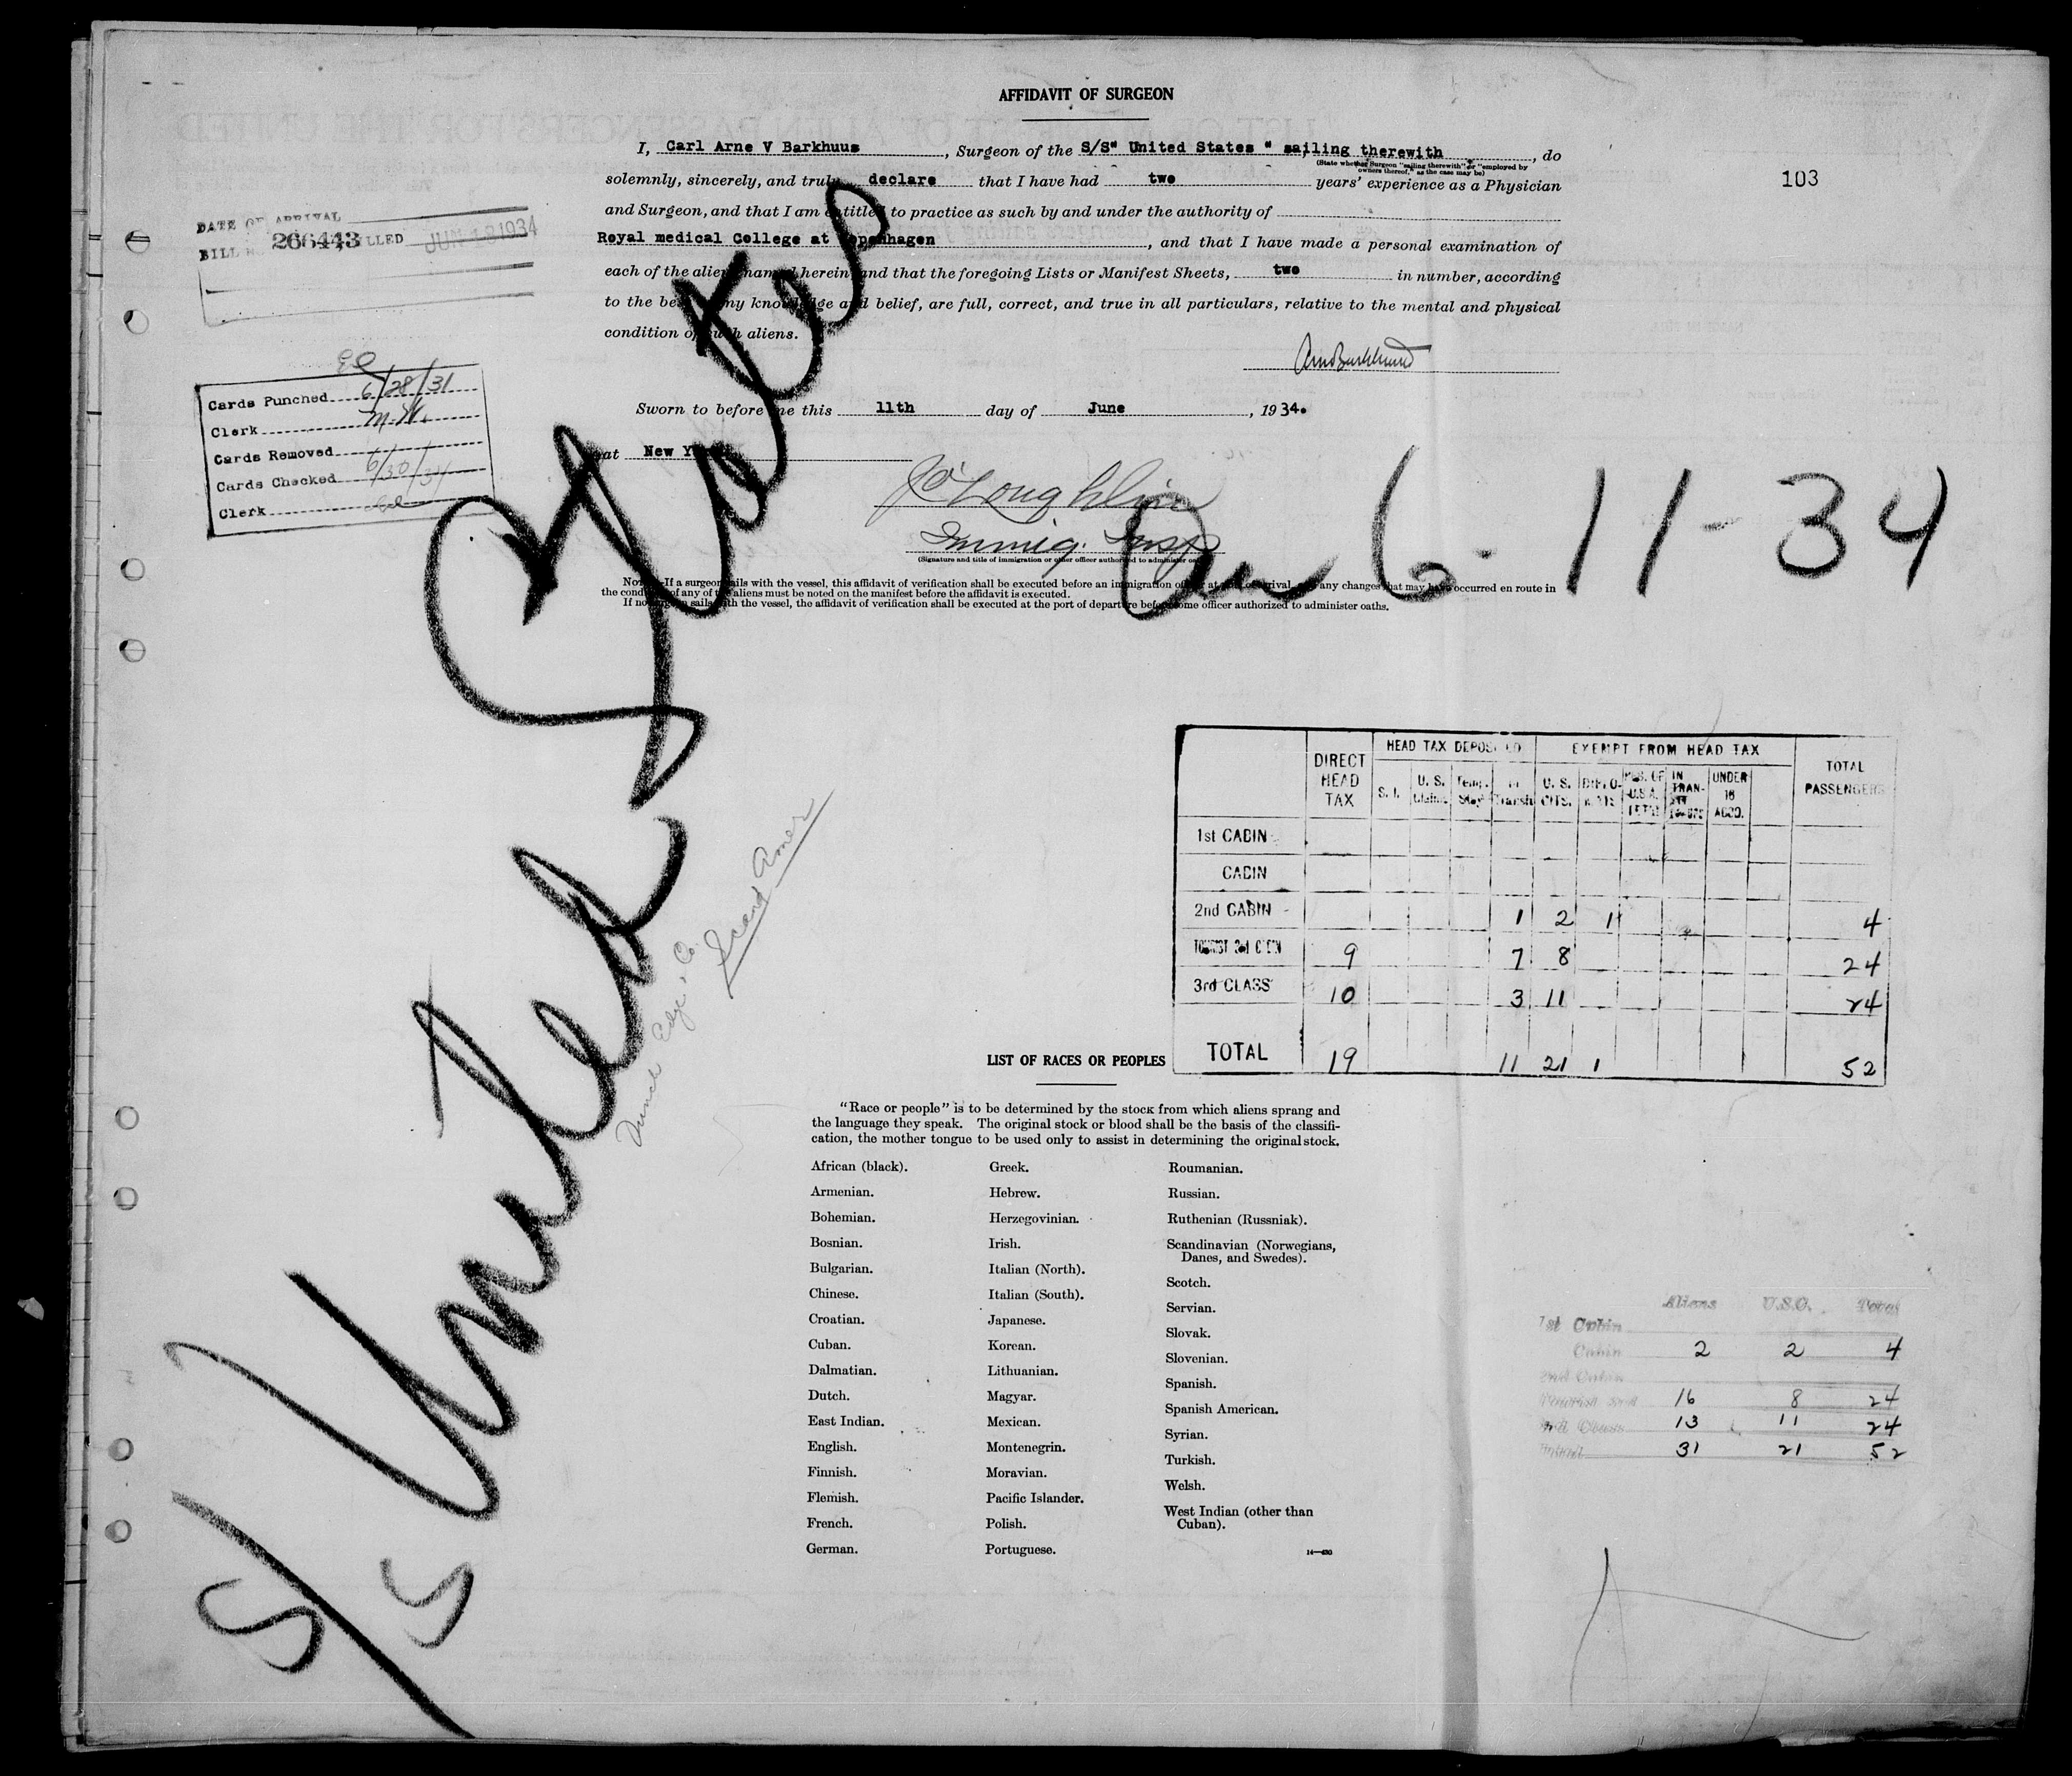 AFFIDAVIT OF SURGEON
I, Carl Arne V Barkhuus, Surgeon of the S/S" United States " sailing therewith, do
(State whether Surgeon "sailing therewith" or "employed by
owners thereof," as the case may be)
solemnly, sincerely, and truly declare that I have had two years' experience as a Physician
and Surgeon, and that I am entitled to practice as such by and under the authority of
Royal medical College at Copenhagen, and that I have made a personal examination of
each of the aliens named herein and that the foregoing Lists or Manifest Sheets, two in number, according
to the best of my knowledge and belief, are full, correct, and true in all particulars, relative to the mental and physical
condition of such aliens.
103
DATE OF ARRIVAL
BILL 266443 BILLED JUN 12 1934
Cards Punched 6/28/31
Clerk M.W.
Cards Removed
Cards Checked 6/30/34
Clerk
Sworn to before me this 11th day of June, 1934.
at New York
Immig. Insp
(Signature and title of immigration or other officer authorized to administer oaths)
Note.—If a surgeon sails with the vessel, this affidavit of verification shall be executed before an immigration officer at port of arrival, and any changes that may have occurred en route in
the condition of any of the aliens must be noted on the manifest before the affidavit is executed.
If no surgeon sails with the vessel, the affidavit of verification shall be executed at the port of departure before some officer authorized to administer oaths.
6-11-34
S/S United States
Scand Amer
DIRECT HEAD TAX
HEAD TAX DEPOSITED
EXEMPT FROM HEAD TAX
TOTAL PASSENGERS
S. I. U. S. Claims Temp. Stay In Transit U. S. CITS. DIPLOMATS RES. OF U.S.A. IN TRANSIT UNDER 16 ACCO.
1st CABIN
CABIN
2nd CABIN 1 2 1 4
TOURIST 3rd CABIN 9 7 8 24
3rd CLASS 10 3 11 24
TOTAL 19 11 21 1 52
LIST OF RACES OR PEOPLES
"Race or people" is to be determined by the stock from which aliens sprang and
the language they speak. The original stock or blood shall be the basis of the classifi-
cation, the mother tongue to be used only to assist in determining the original stock.
African (black).
Armenian.
Bohemian.
Bosnian.
Bulgarian.
Chinese.
Croatian.
Cuban.
Dalmatian.
Dutch.
East Indian.
English.
Finnish.
Flemish.
French.
German.
Greek.
Hebrew.
Herzegovinian.
Irish.
Italian (North).
Italian (South).
Japanese.
Korean.
Lithuanian.
Magyar.
Mexican.
Montenegrin.
Moravian.
Pacific Islander.
Polish.
Portuguese.
Roumanian.
Russian.
Ruthenian (Russniak).
Scandinavian (Norwegians,
Danes, and Swedes).
Scotch.
Servian.
Slovak.
Slovenian.
Spanish.
Spanish American.
Syrian.
Turkish.
Welsh.
West Indian (other than
Cuban).
Aliens U.S.C. Total
1st Cabin
Cabin 2 2 4
2nd Cabin
Tourist 3rd 16 8 24
3rd Class 13 11 24
Total 31 21 52